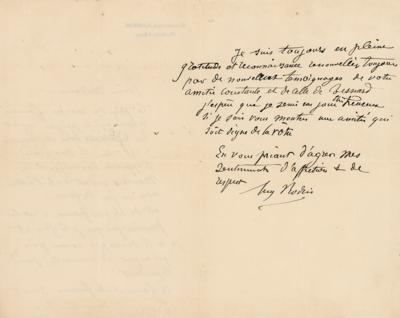 Je suis toujours en pleine
gratitude et reconnaissance renouvellée toujours
par de nouveaux temoignages de votre
amitié constante et de celle de Besnard
j'espère que je serai un jour
si je sais vous montrer une amitié qui
soit digne de la votre
En vous priant d'agreer mes
sentiments d'affection & de
respect
Aug Rodin